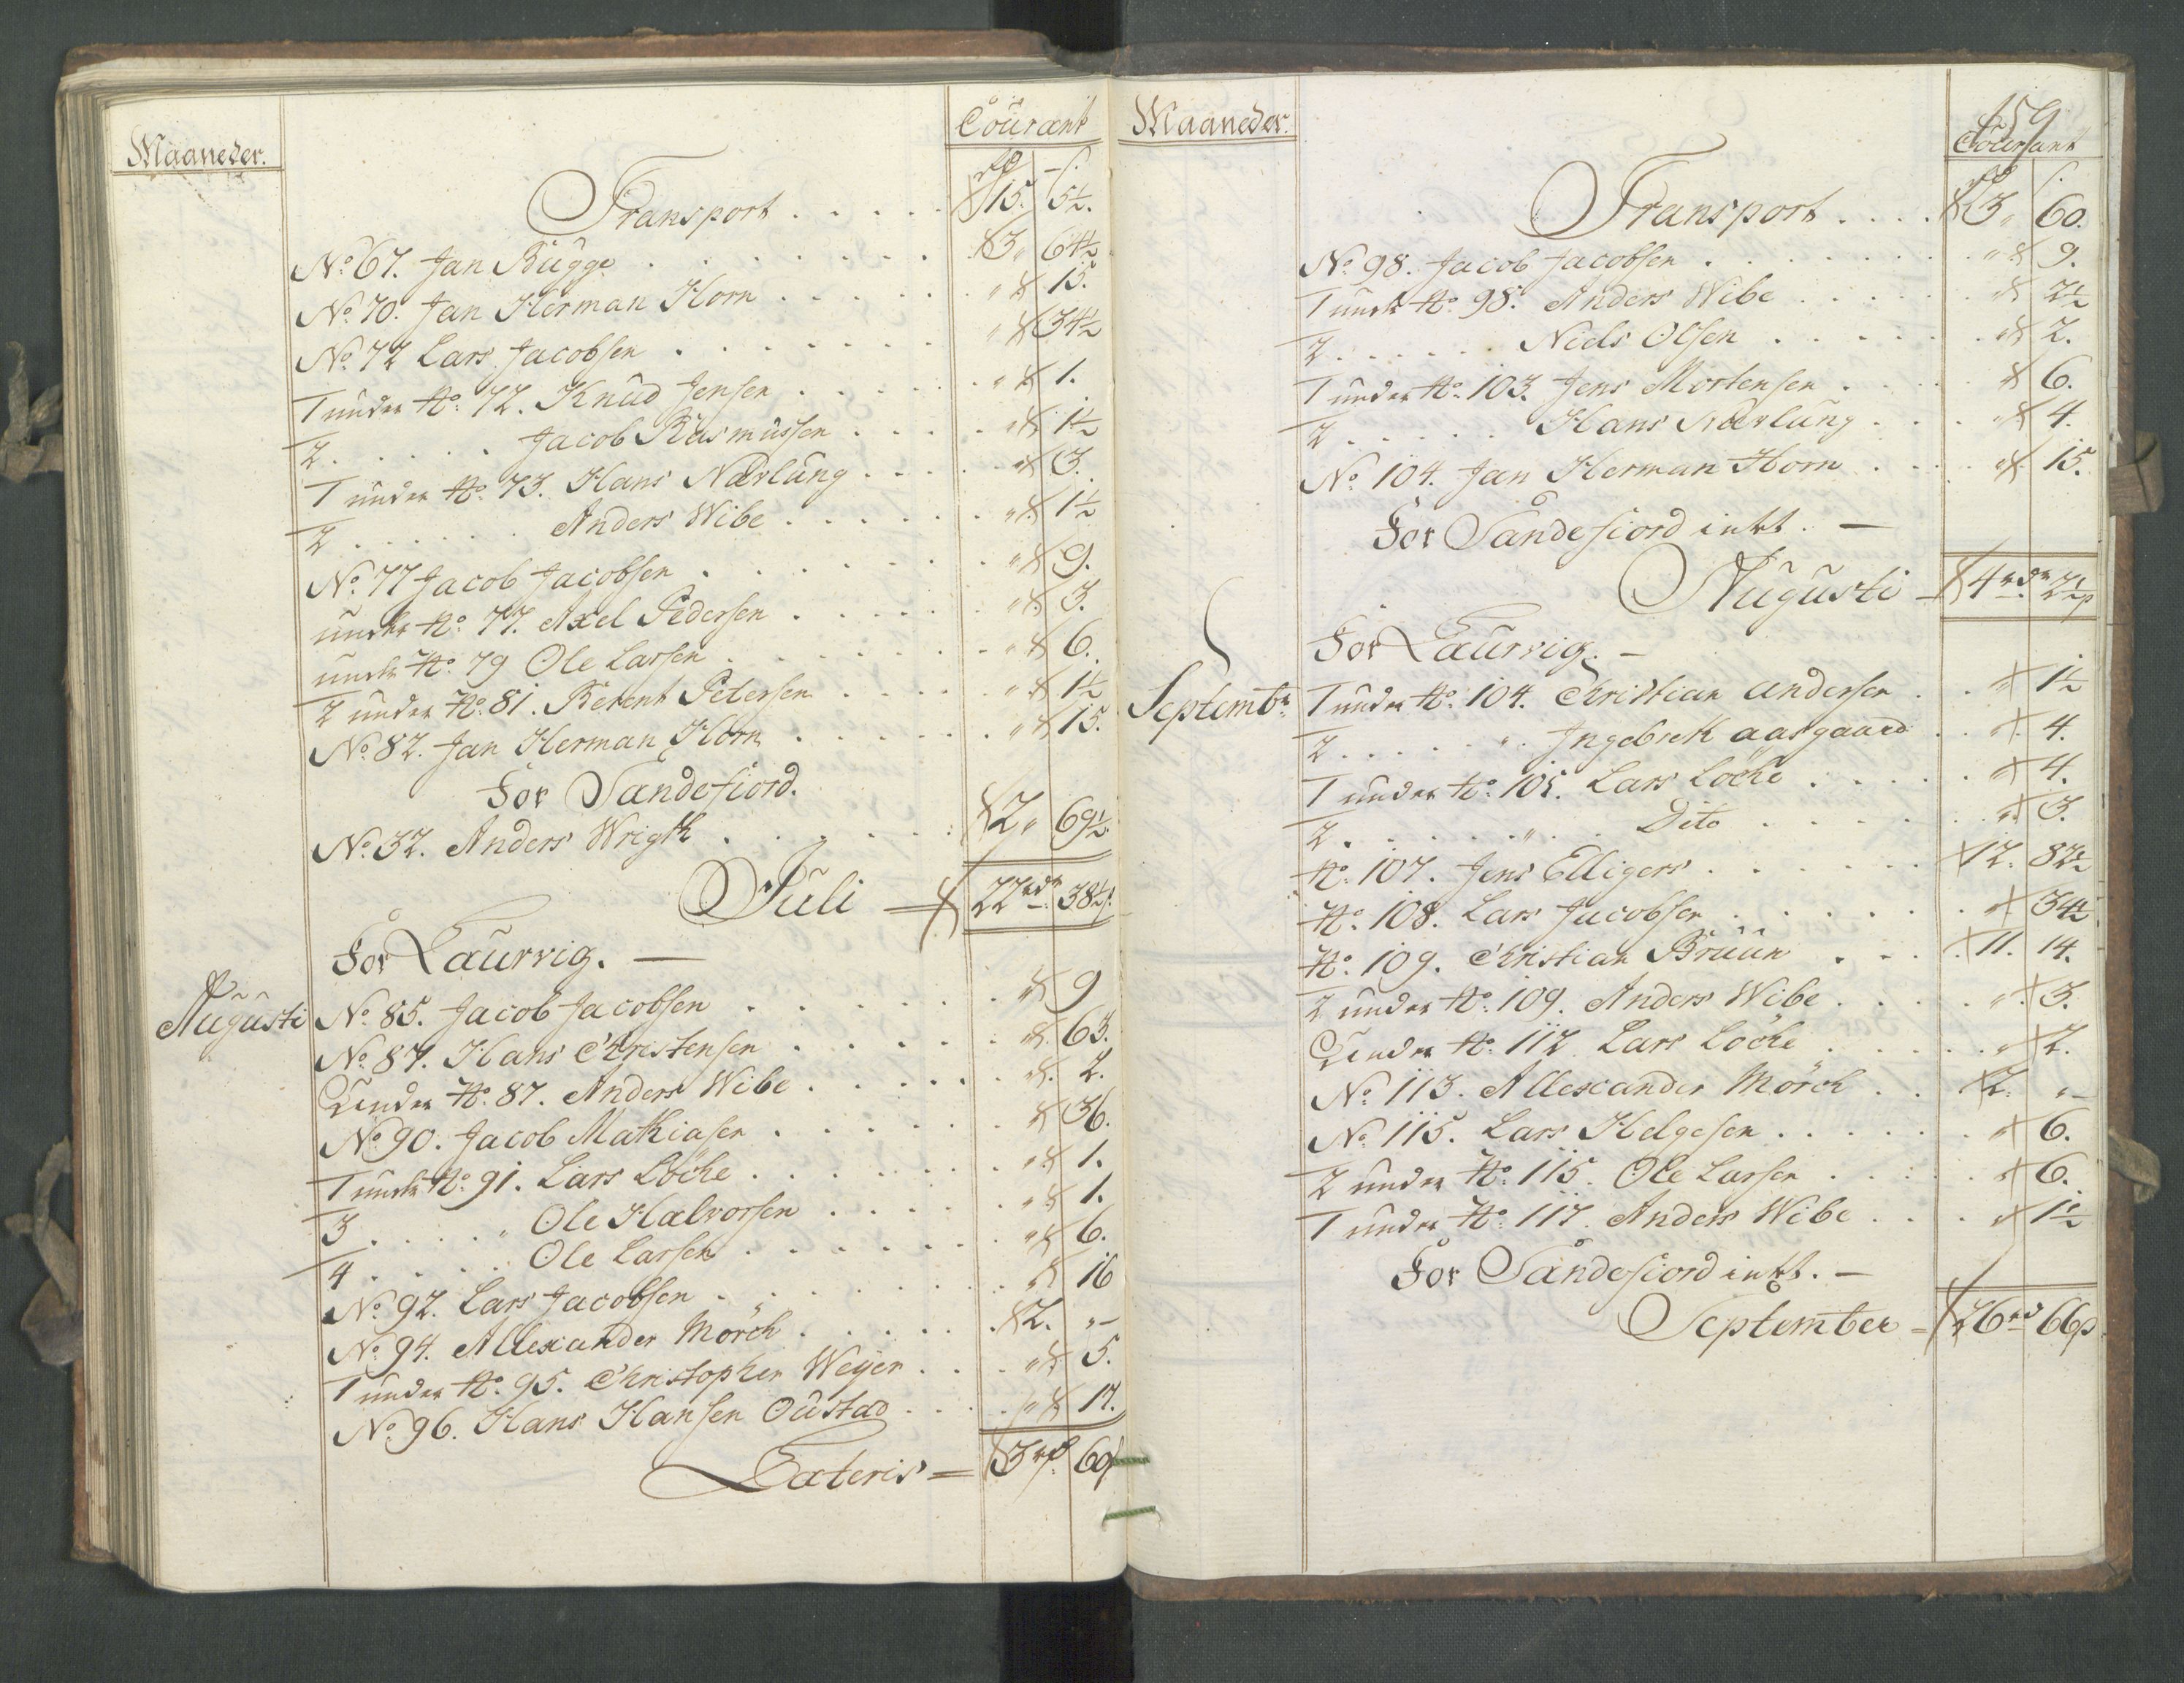 Maaneder.
Courant
rd s.
Transport . . . . . 15. 5½.
No 67. Jan Bugge . . . . . . . . 3 „ 64½
No 70. Jan Herman Horn . . . . . . „ 15.
No 72 Lars Jacobsen . . . . . . . „ 34½
1 under No: 72. Knud Jensen . . . . . „ 1.
2 . . . . . . Jacob Rasmussen . . . . „ 1½
1 under No: 73. Hans Nærlung . . . . . „ 3.
2 . . . . . . Anders Wibe . . . . . . „ 1½
No 77 Jacob Jacobsen . . . . . . . „ 9.
under No: 77. Axel Pedersen . . . . „ 3.
under No: 79 Ole Larsen . . . . . . . „ 6.
2 under No: 81. Berent Petersen . . . . „ 1½
No 82. Jan Herman Horn . . . . . . „ 15.
For Sandefiord.
No 32. Anders Wrigth . . . . . . 2 „ 69½
Juli = 22 rd 38½ s.
For Laurvig. —
Augusti No 85. Jacob Jacobsen . . . . . . . „ 9
No 87. Hans Christensen . . . . . . „ 63.
Under No: 87. Anders Wibe . . . . . . „ 2.
No 90. Jacob Mathiasen . . . . . . . „ 36.
1 under No: 91. Lars Löche . . . . . . . „ 1.
3 . . . . „ Ole Halvorsen . . . . . „ 1.
4 . . . . . Ole Larsen . . . . . . . „ 6.
No 92. Lars Jacobsen . . . . . . . . „ 16
No 94. Allexander Mörch . . . . . . 2. „—
1 under No: 95. Christopher Weyer . . . . „ 5.
No 96. Hans Hansen Oustad . . . . „ 17.
Lateris = 3 rd 60 s
Maaneder.
159
Courant
Transport . . . . 3 „ 60.
No 98. Jacob Jacobsen . . . . . . . . . „ 9.
1 under No: 98. Anders Wibe . . . . . . „ 2½
2 . . . . . . Niels Olsen . . . . . . . „ 2.
1 under No: 103. Jens Mortensen . . . . „ 6.
2 . . . . . Hans Nærlung . . . . „ 4.
No 104. Jan Herman Horn . . . . „ 15.
For Sandefiord intet. —
Augusti = 4 rdr 2½ s
For Laurvig. —
Septembr. 1 under No: 104. Christian Andersen . . „ 1½
2 . . . . . „ . Ingebrek Aasgaard . . „ 4.
1 under No: 105. Lars Löche . . . . . . „ 4.
2 . . . . . . „ . . . Dito . . . . . . . „ 3.
No: 107. Jens Elligers . . . . . . . 12. 82½
No: 108. Lars Jacobsen . . . . . . . „ 34½
No: 109. Christian Bruun . . . . 11. 14.
2 under No: 109. Anders Wibe . . . . . „ 3.
Under No: 112. Lars Löche . . . . . . „ 2.
No 113. Allexander Mörch . . 2. „—
No 115. Lars Helgesen . . . . . . . „ 6.
2 under No: 115. Ole Larsen . . . . . „ 6.
1 under No: 117. Anders Wibe . . . . „ 1½
For Sandefiord intet. —
September = 26 rd 66 s